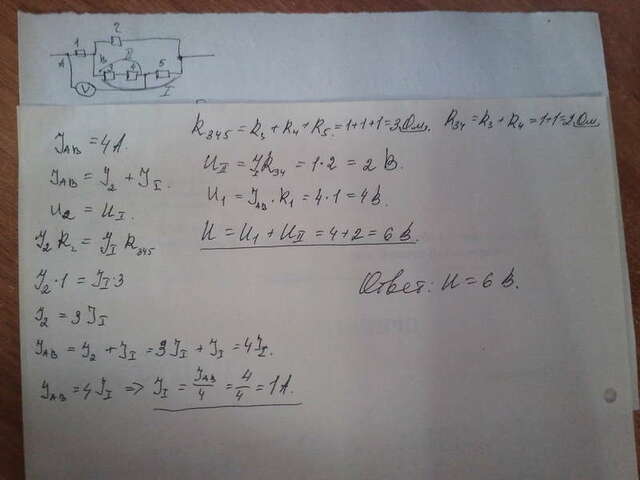 1 2
A B II
3 4 5
V I
J_AB = 4 А.
J_AB = J_2 + J_I.
U_2 = U_I.
J_2 R_2 = J_I R_345
J_2 · 1 = J_I · 3
J_2 = 3 J_I
J_AB = J_2 + J_I = 3 J_I + J_I = 4 J_I.
J_AB = 4 J_I => J_I = J_AB/4 = 4/4 = 1 А.
R_345 = R_3 + R_4 + R_5 = 1+1+1 = 3 Ом. R_34 = R_3 + R_4 = 1+1 = 2 Ом.
U_II = J_I R_34 = 1 · 2 = 2 В.
U_1 = J_AB · R_1 = 4 · 1 = 4 В.
U = U_1 + U_II = 4 + 2 = 6 В.
Ответ: U = 6 В.